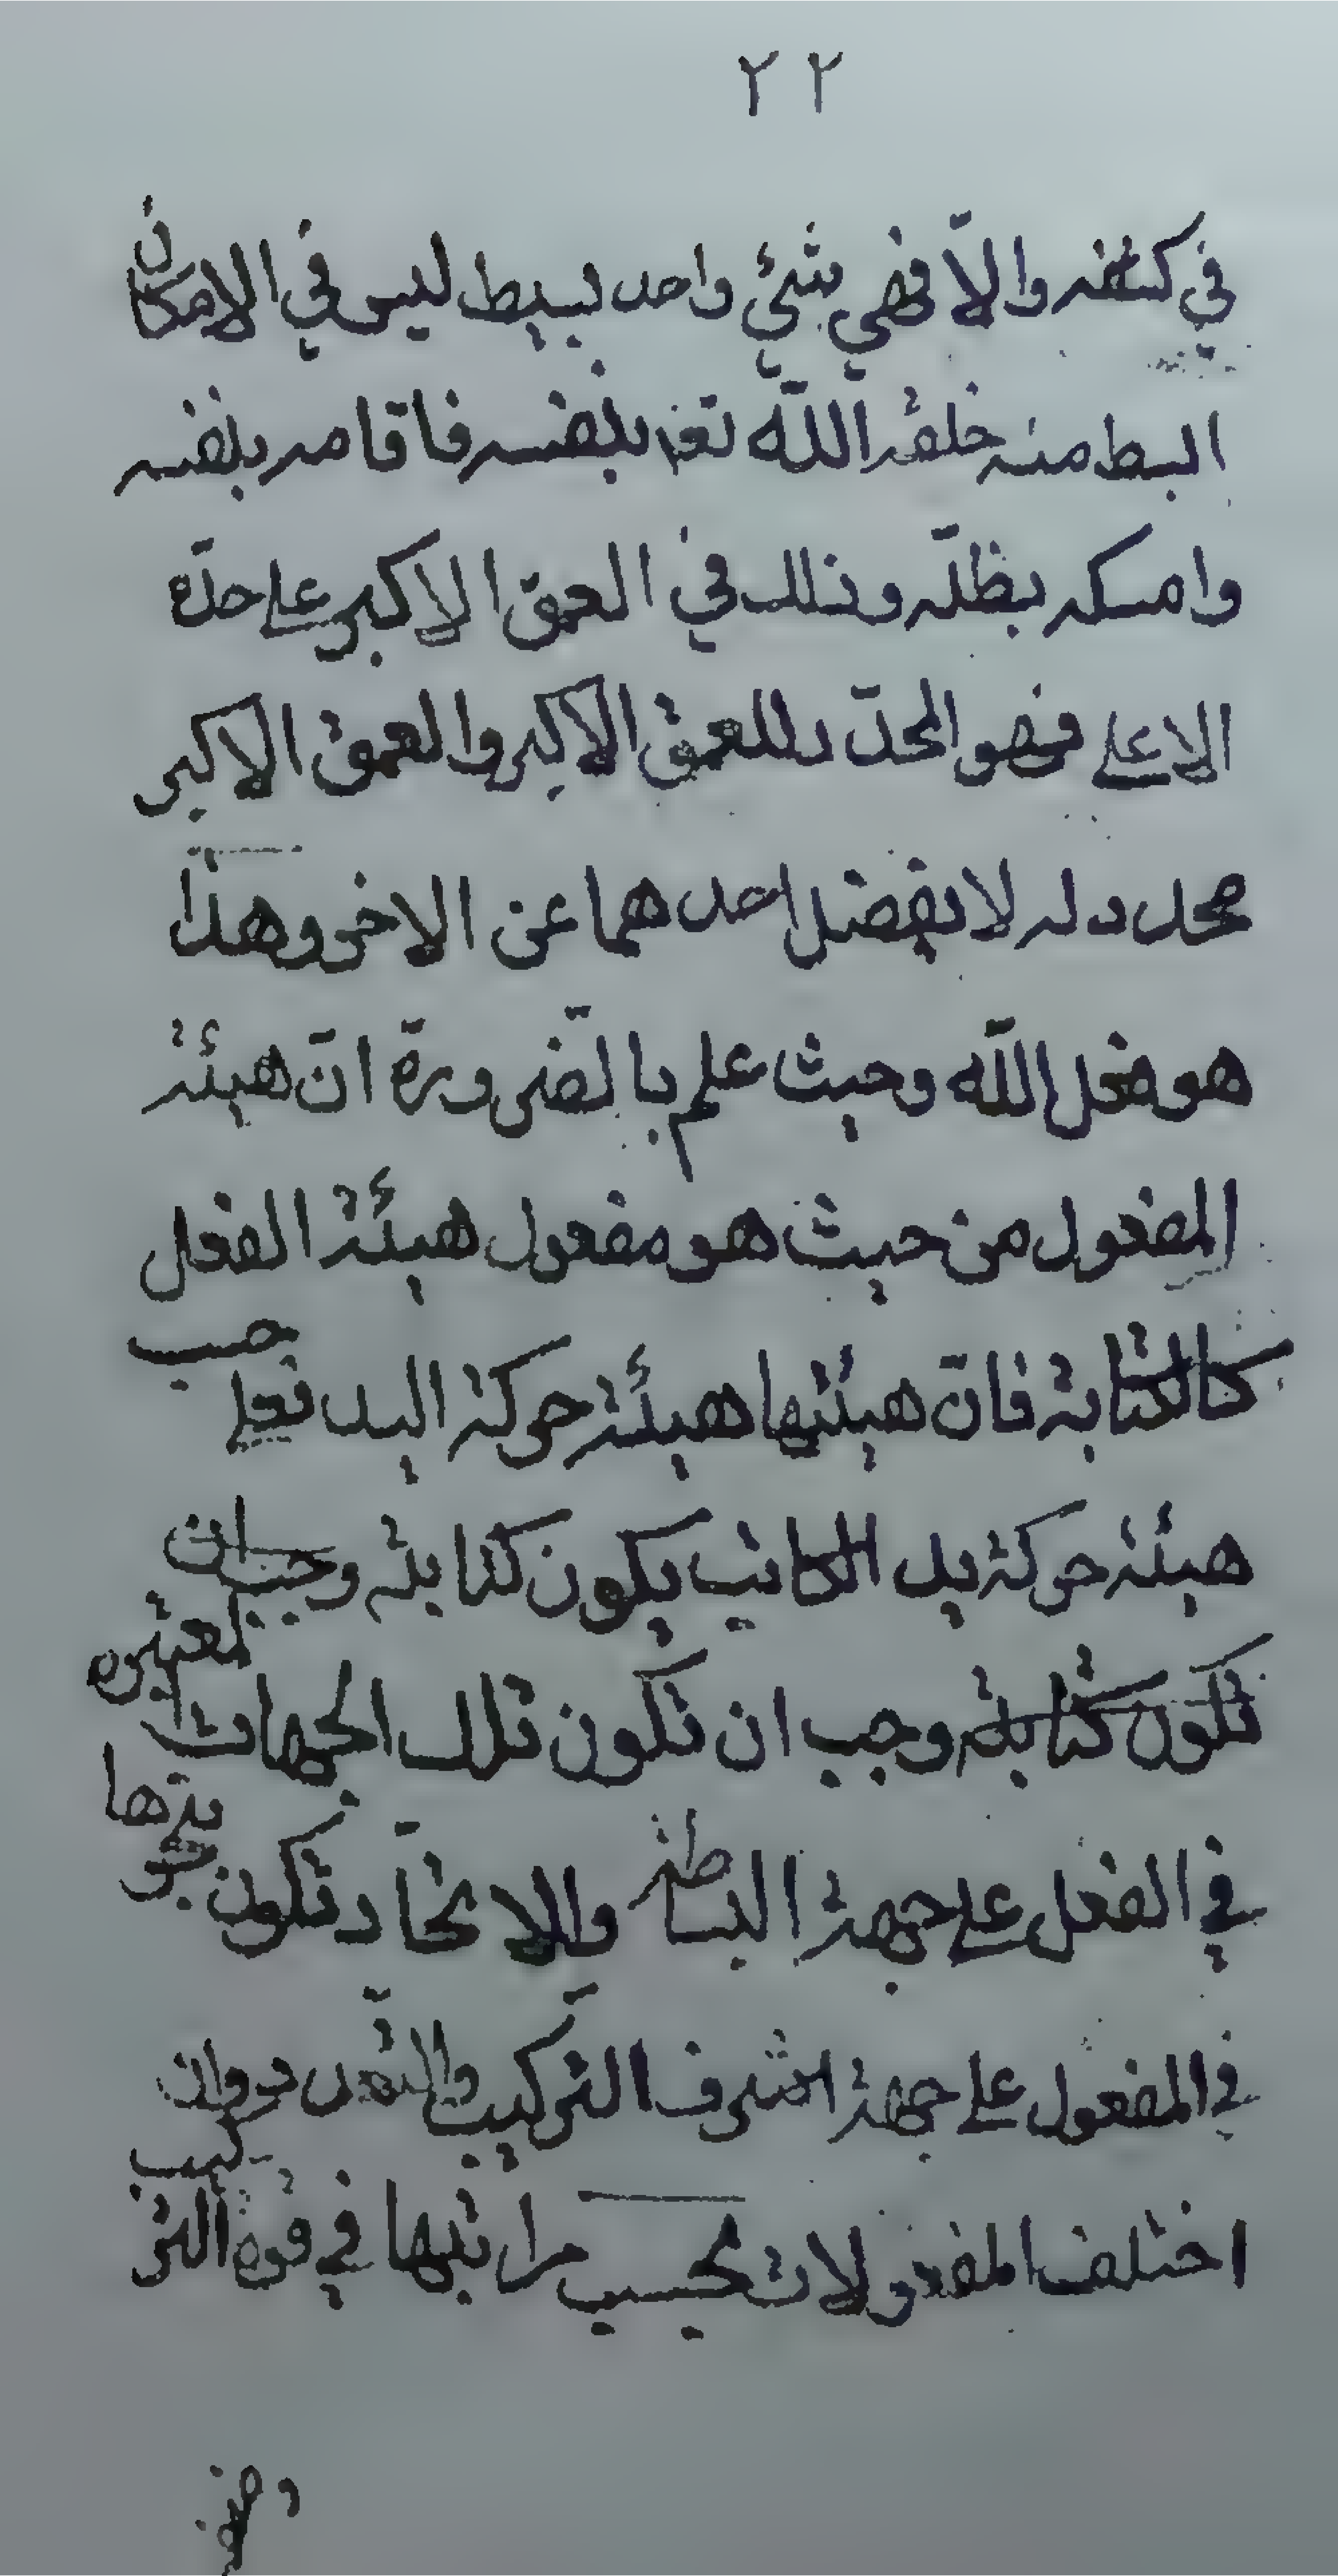 ٢٢
في كنفه والّا فهي شيئ واحد بسيط ليس في الامكان
ابسط منه خلقه اللّه تعا بنفسه فاقامه بنفسه
وامسكه بظلّه وذلك في العمق الاكبر على حدّه
الاعلى فهو المحدّد للعمق الاكبر والعمق الاكبر
محدد له لا يفضل احدهما عن الاخر وهذا
هو فعل اللّه وحيث علم بالضّرورة انّ هيئة
المفعول من حيث هو مفعول هيئة الفعل
كالكتابة فانّ هيئتها هيئة حركة اليد فعلى حسب
هيئة حركة يد الكاتب يكون كتابته وجب ان
تكون كتابته وجب ان تكون تلك الجهات المعتبره
في الفعل على جهة البساطة والاتحّاد تكون
في المفعول على جهة اشرف التركيب والتعّدد وان
اختلف المفعولات بحسب مراتبها في قوة التركيب